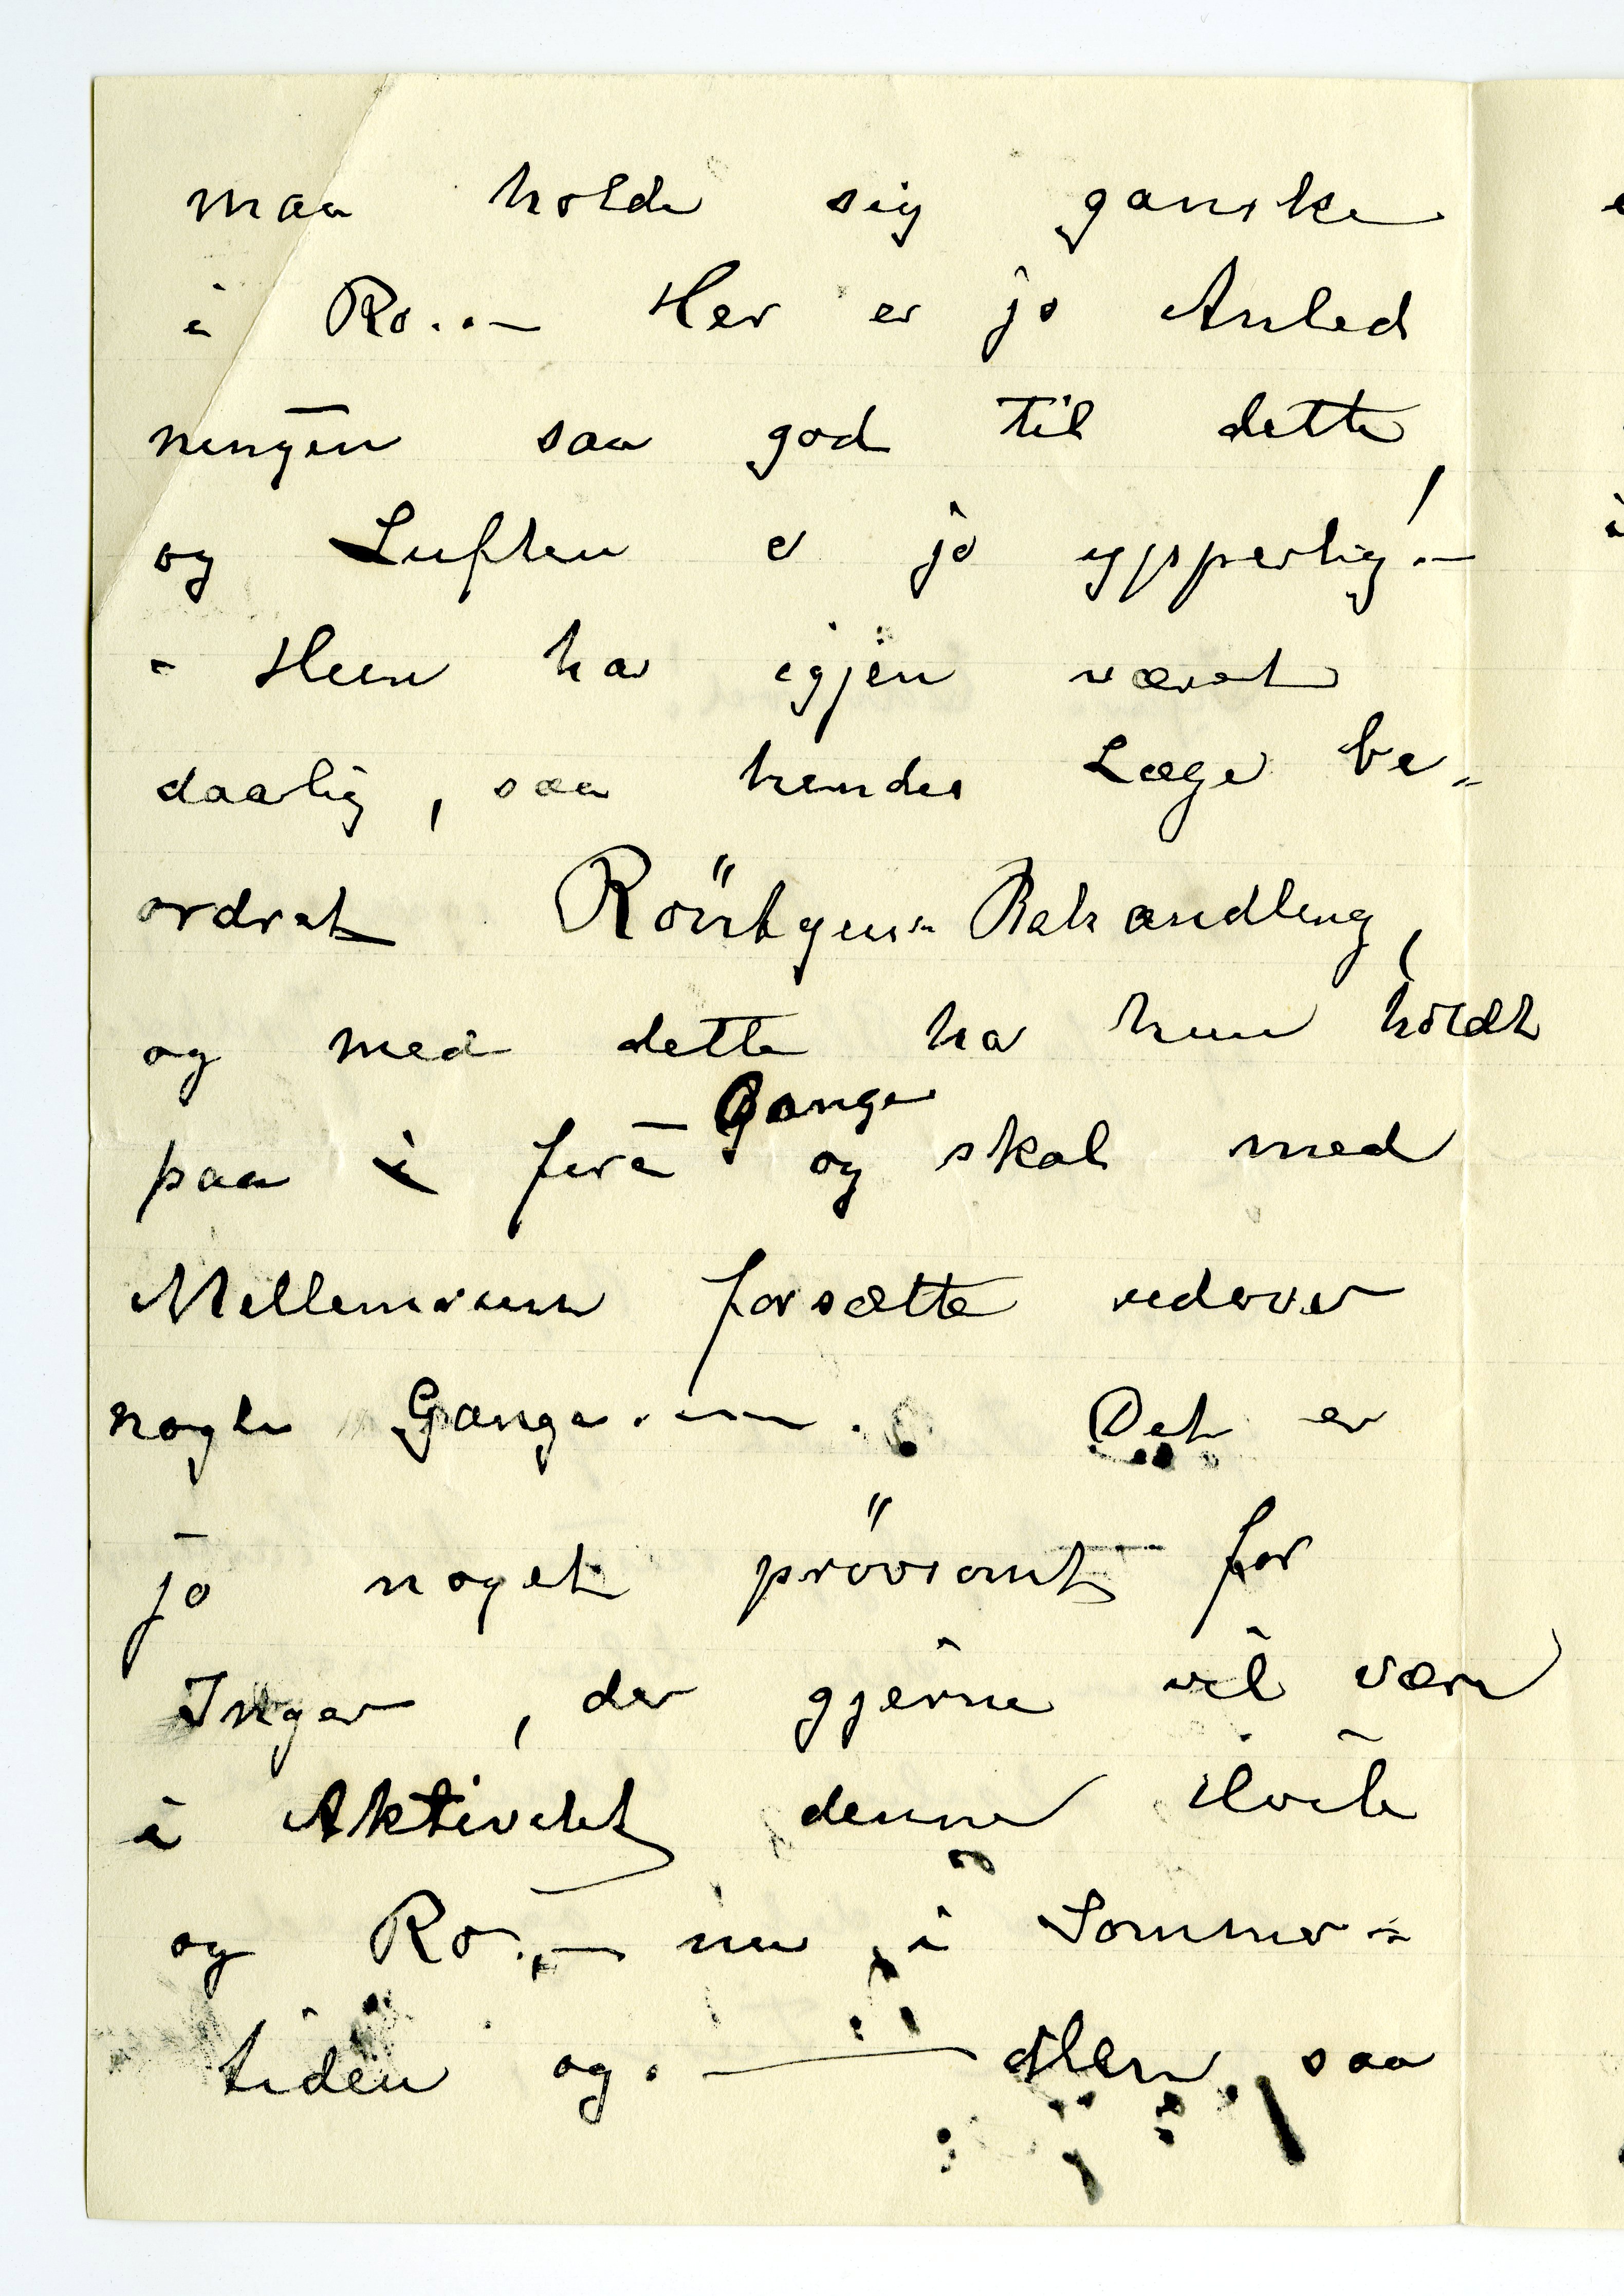 maa holde sig ganske
i Ro. .— Her er jo Anled
ningen saa god til dette,
og Luften er jo ypperlig! —
- Hun har igjen været
daarlig, saa hendes Læge be-
ordret Röntgens-Behandling,
og med dette ha hun holdt
paa i fire Gange og skal med
Mellemrum forsætte vedover
nogle Gange. — . Det er
jo noget prövsomt for
Inger, der gjerne vil være
i Aktivitet denne Hvile
og Ro. — nu i Sommer-
tiden og. — Men saa